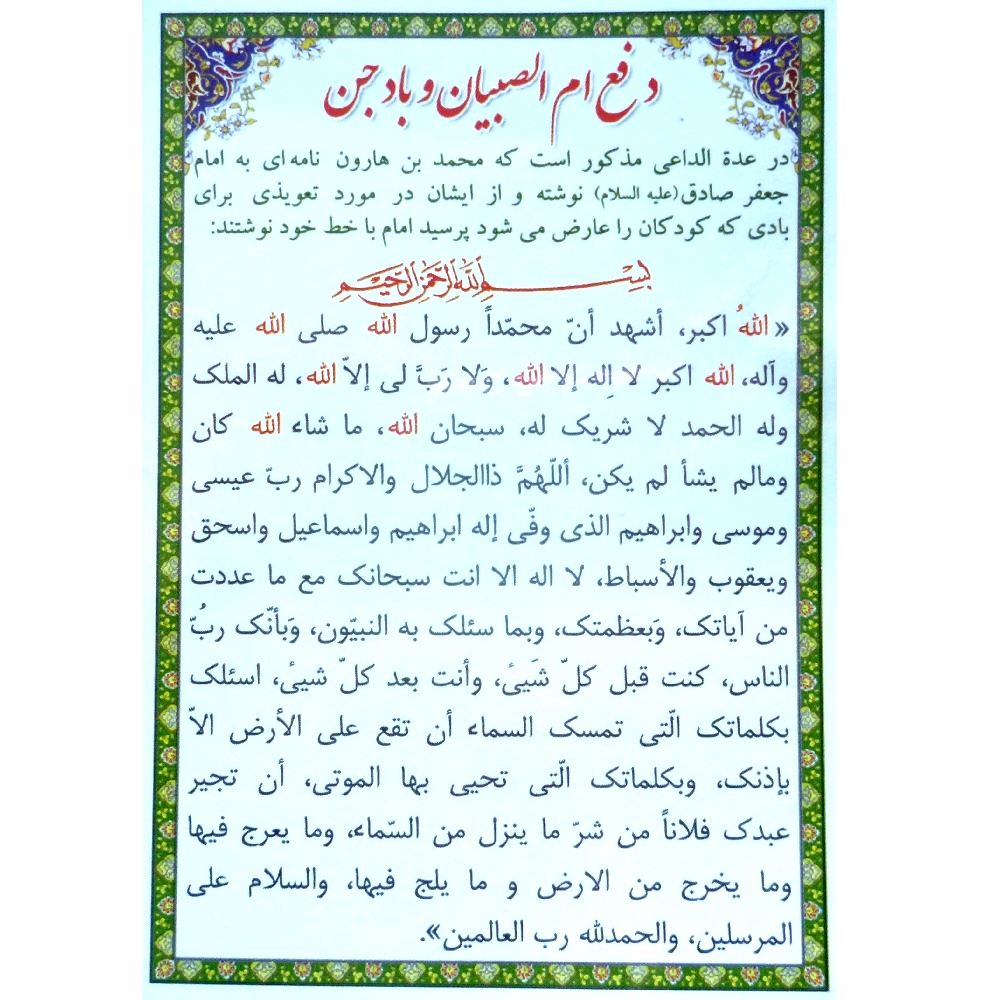 دفع ام الصبیان و باد جن
در عدة الداعی مذکور است که محمد بن هارون نامه ای به امام
جعفر صادق(علیه السلام) نوشته و از ایشان در مورد تعویذی برای
بادی که کودکان را عارض می شود پرسید امام با خط خود نوشتند:
بسم الله الرحمن الرحیم
«اللهُ اکبر، أشهد أنّ محمّداً رسول الله صلی الله علیه
وآله، الله اکبر لا اِله إلا الله، وَلا رَبَّ لی إلاّ الله، له الملک
وله الحمد لا شریک له، سبحان الله، ما شاء الله کان
ومالم یشأ لم یکن، أللّهُمَّ ذاالجلال والاکرام ربّ عیسی
وموسی وابراهیم الذی وفّی إله ابراهیم واسماعیل واسحق
ویعقوب والأسباط، لا اله الا انت سبحانک مع ما عددت
من آیاتک، وَبعظمتک، وبما سئلک به النبیّون، وَبأنّک ربُّ
الناس، کنت قبل کلّ شَییٔ، وأنت بعد کلّ شییٔ، اسئلک
بکلماتک الّتی تمسک السماء أن تقع علی الأرض الاّ
بإذنک، وبکلماتک الّتی تحیی بها الموتی، أن تجیر
عبدک فلاناً من شرّ ما ینزل من السّماء، وما یعرج فیها
وما یخرج من الارض و ما یلج فیها، والسلام علی
المرسلین، والحمدلله رب العالمین».